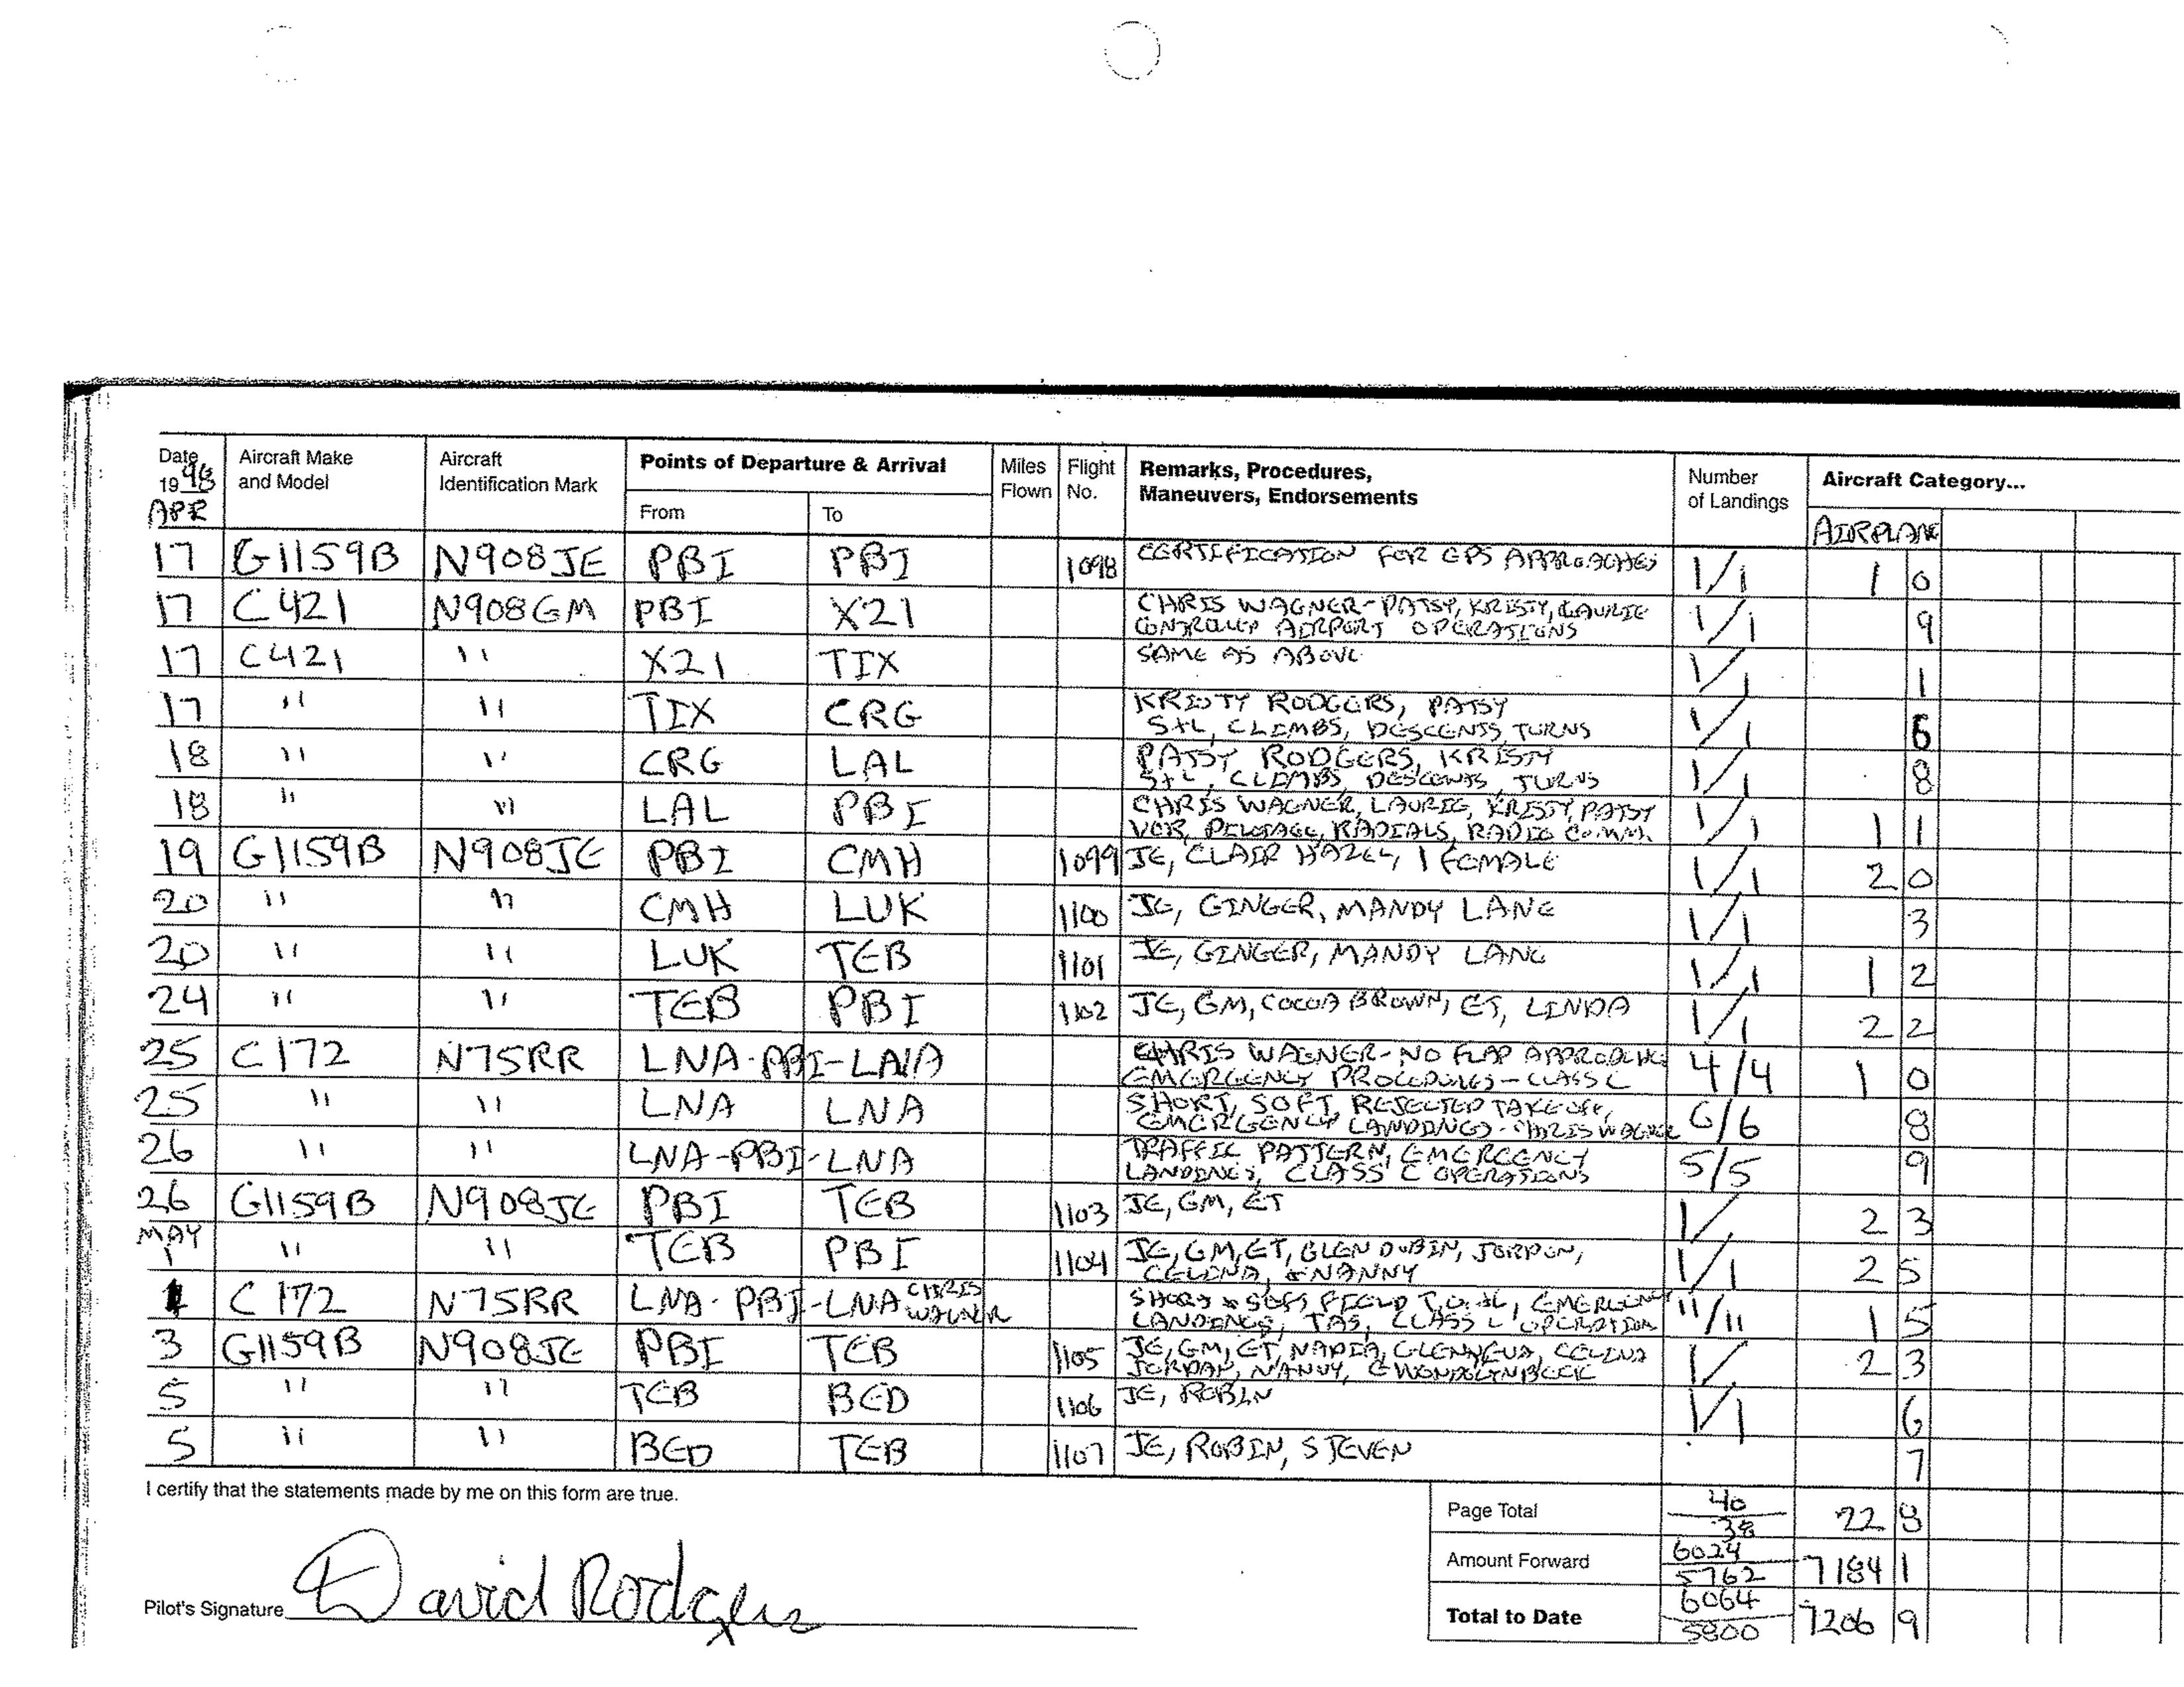 Date Aircraft Make Aircraft Points of Departure & Arrival Miles Flight Remarks, Procedures, Number Aircraft Category...
1998 and Model Identification Mark From To Flown No. Maneuvers, Endorsements of Landings
APR AIRPLANE
17 G1159B N908JE PBI PBI 1098 CERTIFICATION FOR GPS APPROACHES 1/1 1 0
17 C421 N908GM PBI X21 CHRIS WAGNER-PATSY, KRISTY, LAURIE 1/1 9
CONTROLLED AIRPORT OPERATIONS
17 C421 " X21 TIX SAME AS ABOVE 1/1 1
17 " " TIX CRG KRISTY RODGERS, PATSY 1/1 6
S+L, CLIMBS, DESCENTS, TURNS
18 " " CRG LAL PATSY RODGERS, KRISTY 1/1 8
S+L, CLIMBS, DESCENTS, TURNS
18 " " LAL PBI CHRIS WAGNER, LAURIE, KRISTY, PATSY 1/1 1 1
VOR, PILOTAGE, RADIALS, RADIO COMM.
19 G1159B N908JE PBI CMH 1099 JE, CLAIR HAZEL, 1 FEMALE 1/1 2 0
20 " " CMH LUK 1100 JE, GINGER, MANDY LANE 1/1 3
20 " " LUK TEB 1101 JE, GINGER, MANDY LANE 1/1 1 2
24 " " TEB PBI 1102 JE, GM, COCOA BROWN, ET, LINDA 1/1 2 2
25 C172 N75RR LNA-PBI-LNA CHRIS WAGNER-NO FLAP APPROACHES 4/4 1 0
EMERGENCY PROCEDURES-CLASS C
25 " " LNA LNA SHORT, SOFT, REJECTED TAKEOFF, 6/6 8
EMERGENCY LANDINGS-CHRIS WAGNER
26 " " LNA-PBI-LNA TRAFFIC PATTERN, EMERGENCY 5/5 9
LANDINGS, CLASS C OPERATIONS
26 G1159B N908JE PBI TEB 1103 JE, GM, ET 1/ 2 3
MAY
1 " " TEB PBI 1104 JE, GM, ET, GLEN DUBIN, JORDON, 1/1 2 5
CELINA, + NANNY
1 C172 N75RR LNA-PBI-LNA CHRIS WAGNER SHORT & SOFT FIELD T.O. +L, EMERGENCY 11/11 1 5
LANDINGS, TAS, CLASS C OPERATION
3 G1159B N908JE PBI TEB 1105 JE, GM, ET, NADIA, GLENN, EVA, CELINA 1/ 2 3
JORDAN, NANNY, GWENDOLYN BECK
5 " " TEB BED 1106 JE, ROBIN 1/1 6
5 " " BED TEB 1107 JE, ROBIN, STEVEN 7
I certify that the statements made by me on this form are true.
Page Total 40 38 22 8
Amount Forward 6024 5762 7184 1
Total to Date 6064 5800 7206 9
Pilot's Signature David Rodgers